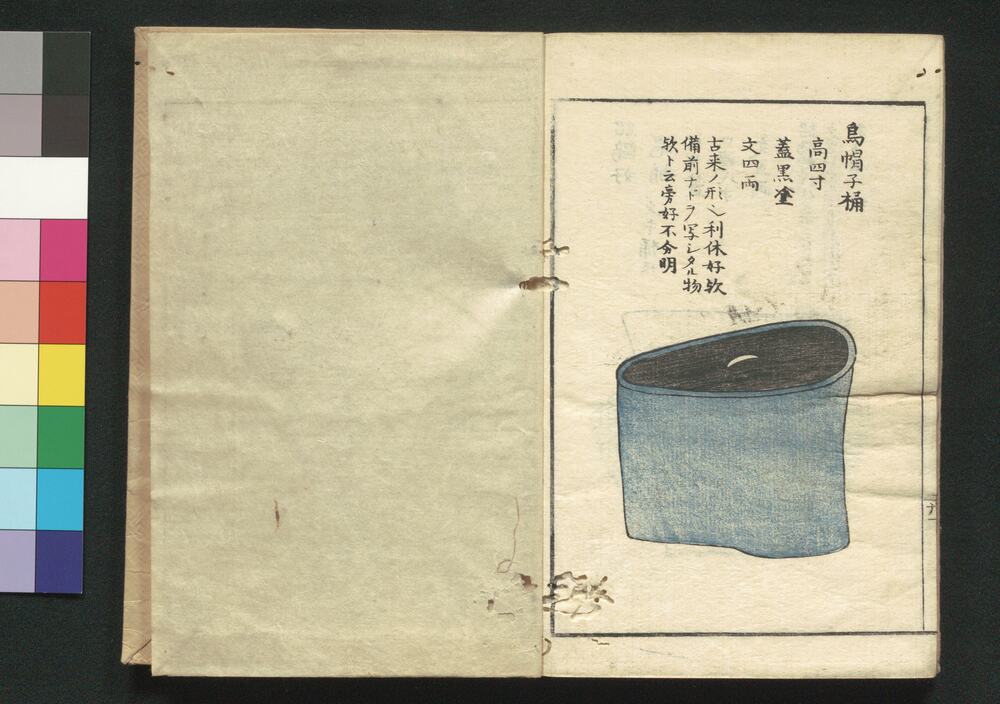 烏帽子桶
高四寸
蓋黒塗
文四両
古来ノ形也利休好欤
備前ナドラ写シタル物
欤ト云旁好不分明